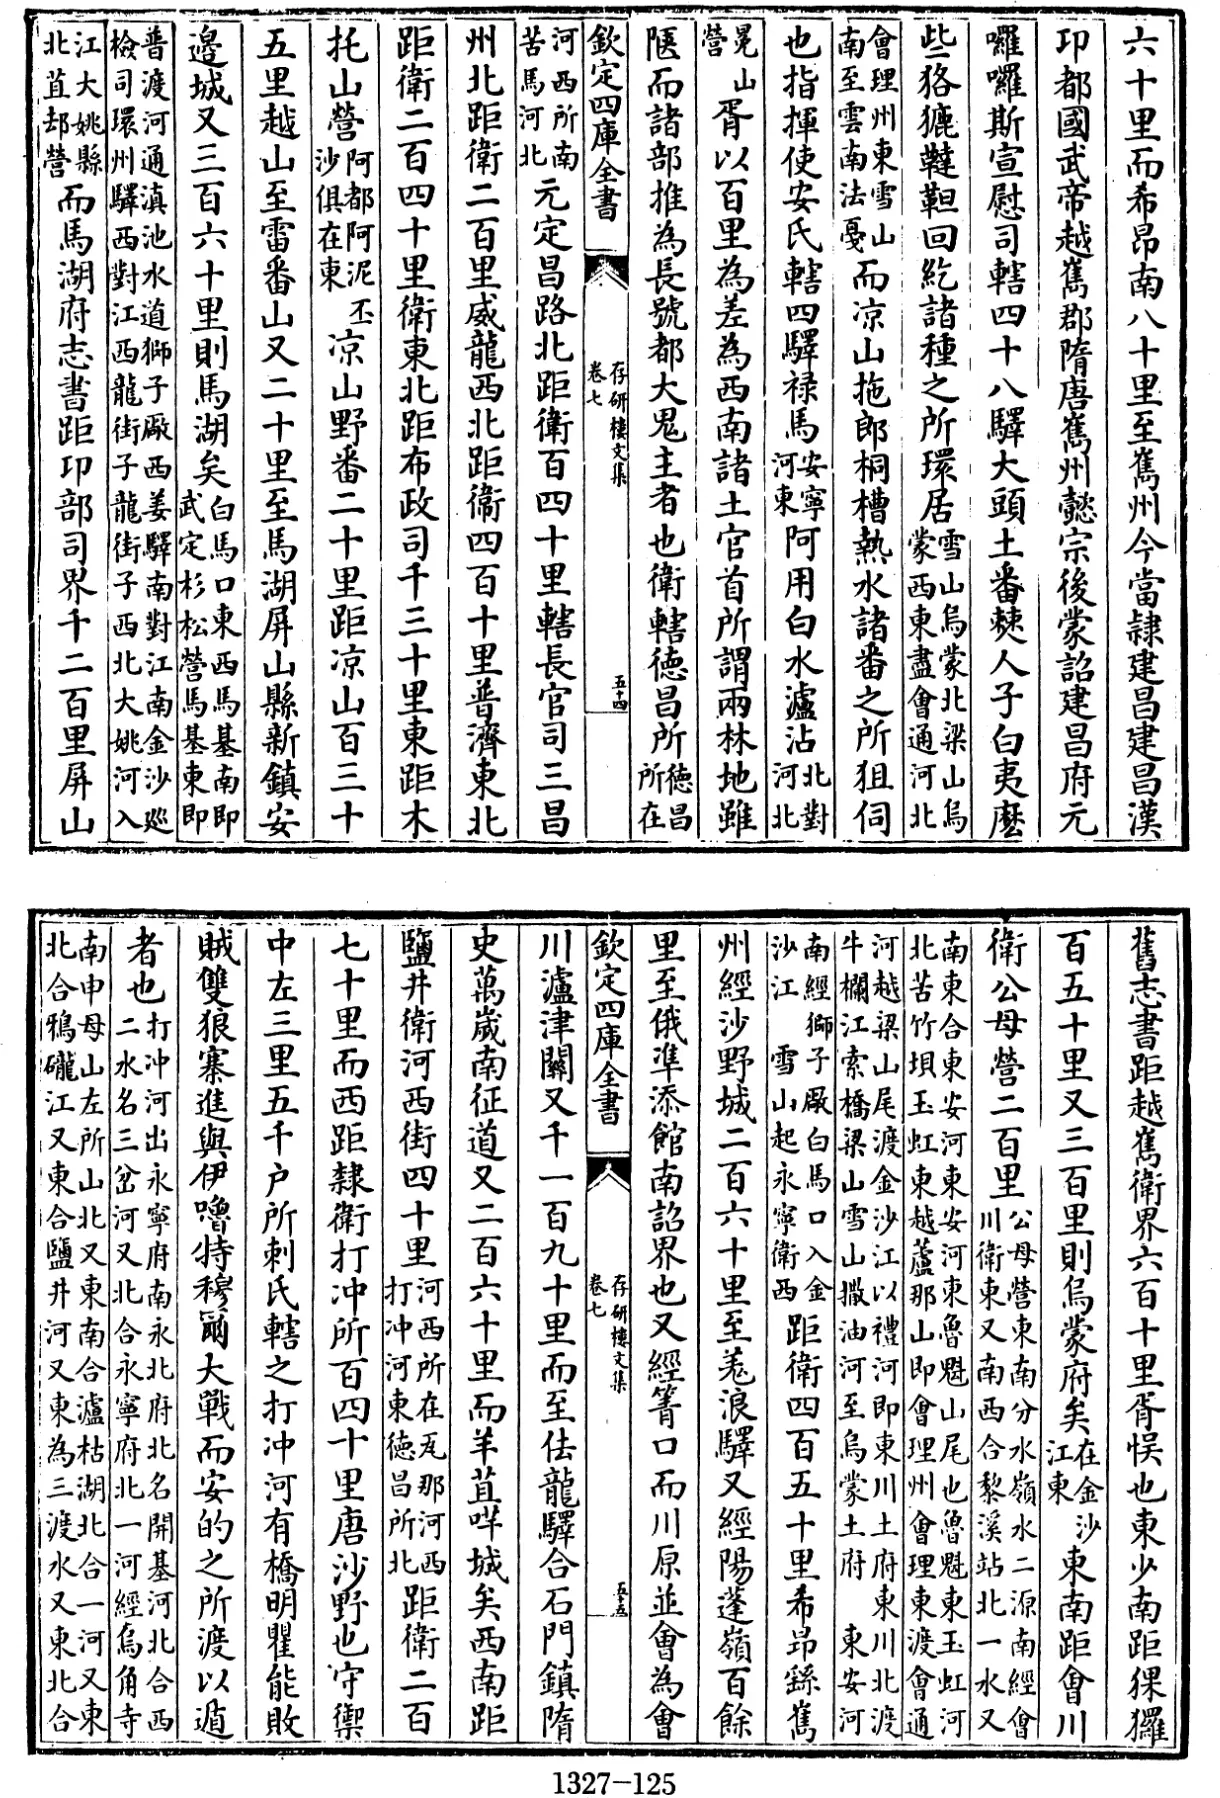 六十里而希昂南八十里至嶲州今當隷建昌建昌漢
卭都國武帝越嶲郡隋唐嶲州懿宗後蒙詔建昌府元
囉囉斯宣慰司轄四十八驛大頭土番僰人子白夷麽
些狢㺢韃靼回紇諸種之所環居雪山烏蒙北梁山烏
蒙西東盡會通河北
會理州東雪山
南至雲南法戞而凉山拖郎桐槽熱水諸番之所狙伺
也指揮使安氏轄四驛禄馬安寧
河東阿用白水瀘沽北對
河北
晃山
營胥以百里為差為西南諸土官首所謂兩林地雖
陿而諸部推為長號都大鬼主者也衛轄德昌所德昌
所在
欽定四庫全書
存研樓文集
卷七
五十四
河西所南
苦馬河北元定昌路北距衛百四十里轄長官司三昌
州北距衛二百里威龍西北距衛四百十里普濟東北
距衛二百四十里衛東北距布政司千三十里東距木
托山營阿都阿泥
沙俱在東丕凉山野番二十里距凉山百三十
五里越山至雷番山又二十里至馬湖屏山縣新鎮安
邊城又三百六十里則馬湖矣白馬口東西馬基南即
武定杉松營馬基東即
普渡河通滇池水道獅子厰西姜驛南對江南金沙廵
檢司環州驛西對江西龍街子龍街子西北大姚河入
江大姚縣
北苴却營而馬湖府志書距卭部司界千二百里屏山
舊志書距越嶲衛界六百十里胥悞也東少南距猓玀
百五十里又三百里則烏蒙府矣在金沙
江東東南距會川
衛公母營二百里公母營東南分水嶺水二源南經會
川衛東又南西合黎溪站北一水又
南東合東安河東安河東魯魁山尾也魯魁東玉虹河
北苦竹壩玉虹東越蘆那山即會理州會理東渡會通
河越梁山尾渡金沙江以禮河即東川土府東川北渡
牛欄江索橋梁山雪山撒油河至烏蒙土府東安河
南經獅子厰白馬口入金
沙江雪山起永寧衛西距衛四百五十里希昻繇嶲
州經沙野城二百六十里至羗浪驛又經陽蓬嶺百餘
里至俄凖添館南詔界也又經菁口而川原並會為會
欽定四庫全書
存研樓文集
卷七
五十五
川瀘津關又千一百九十里而至佉龍驛合石門鎮隋
史萬歲南征道又二百六十里而羊苴哶城矣西南距
鹽井衛河西街四十里河西所在瓦那河西
打冲河東德昌所北距衛二百
七十里而西距隸衛打冲所百四十里唐沙野也守禦
中左三里五千户所剌氏轄之打冲河有橋明瞿能敗
賊雙狼寨進與伊嚕特穆爾大戰而安的之所渡以遁
者也打冲河出永寧府南永北府北名開基河北合西
二水名三岔河又北合永寧府北一河經烏角寺
南申母山左所山北又東南合瀘枯湖北合一河又東
北合鴉礲江又東合鹽井河又東為三渡水又東北合
1327-125